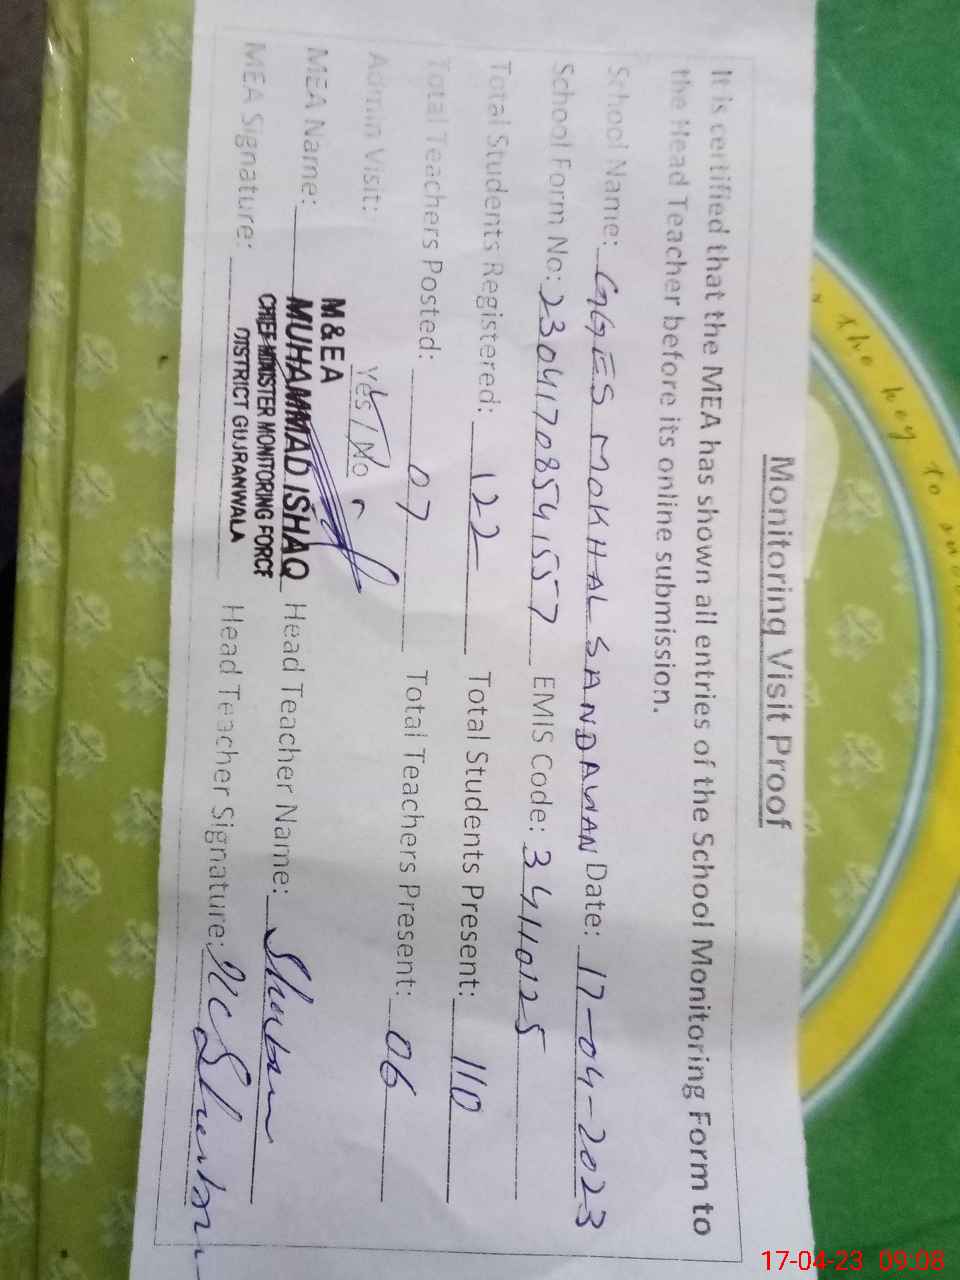 Monitoring Visit Proof
It is certified that the MEA has shown all entries of the School Monitoring Form to
the Head Teacher before its online submission.
School Name: GGES MOKHAL SANDAWAN Date: 17-04-2023
School Form No: 23041708541557 EMIS Code: 34110125
Total Students Registered: 122 Total Students Present: 110
Total Teachers Posted: 07 Total Teachers Present: 06
Admin Visit: Yes / No
M & EA
MEA Name: MUHAMMAD ISHAQ Head Teacher Name:
CHIEF MINISTER MONITORING FORCE
MEA Signature: DISTRICT GUJRANWALA Head Teacher Signature:
the key to
17-04-23 09:08